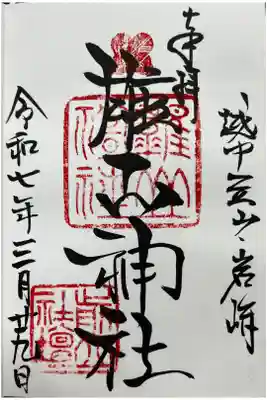 越中立山岩峅
奉拝
雄山神社
令和七年三月廿九日